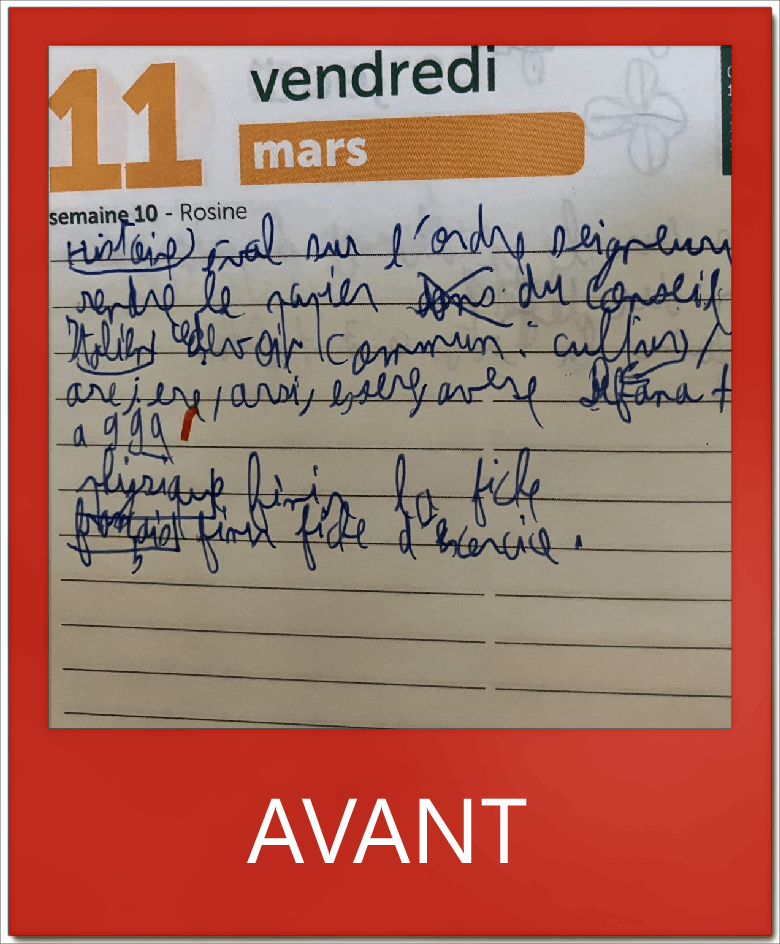 11 vendredi
mars
semaine 10 - Rosine
Histoire éval sur l'ordre seigneur
rendre le papier dans du conseil
Italien devoir commun : culture /
are, ere, arsi, essere, avere
a 999
physique finir la fiche
français finir fiche d'exercice.
AVANT